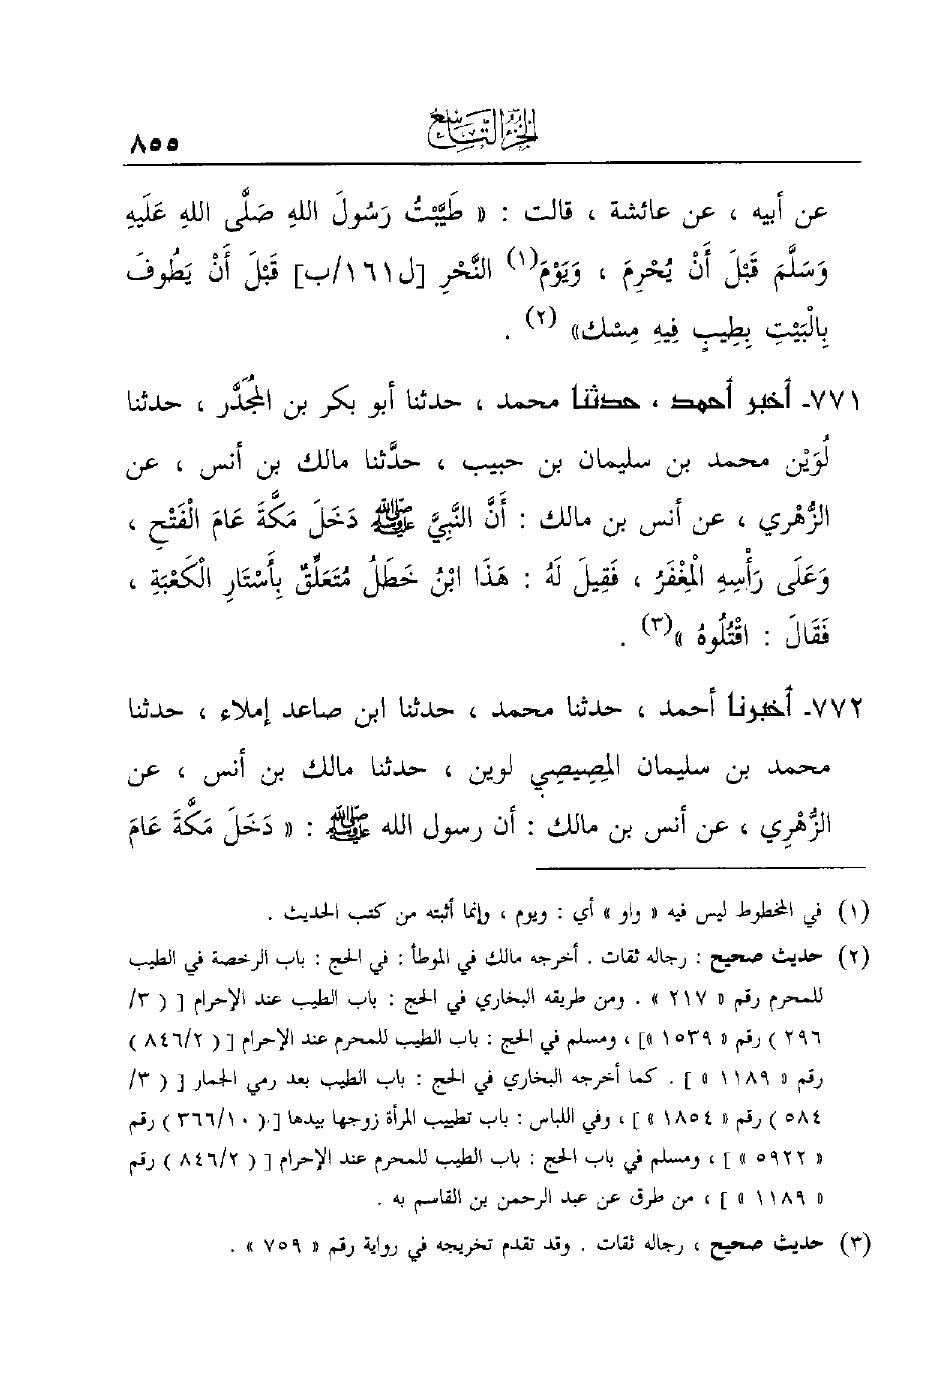 الجزء التاسع ٨٥٥
عن أبيه ، عن عائشة ، قالت : « طَيَّبْتُ رَسُولَ اللهِ صَلَّى اللهِ عَلَيهِ
وَسَلَّمَ قَبْلَ أَنْ يُحْرِمَ ، وَيَوْمَ(١) النَّحْرِ [ل١٦١/ب] قَبْلَ أَنْ يَطُوفَ
بِالْبَيْتِ بِطِيبٍ فِيهِ مِسْك» (٢) .
٧٧١ـ أخبر أحمد ، حدثنا محمد ، حدثنا أبو بكر بن المُجَدَّر ، حدثنا
لُوَيْن محمد بن سليمان بن حبيب ، حدَّثنا مالك بن أنس ، عن
الزُّهْري ، عن أنس بن مالك : أَنَّ النَّبِيَّ ﷺ دَخَلَ مَكَّةَ عَامَ الْفَتْحِ ،
وَعَلَى رَأْسِهِ الْمِغْفَرُ ، فَقِيلَ لَهُ : هَذَا ابْنُ خَطَلُ مُتَعَلِّقٌ بِأَسْتَارِ الْكَعْبَةِ ،
فَقَالَ : اقْتُلُوهُ »(٣) .
٧٧٢ـ أخبرنا أحمد ، حدثنا محمد ، حدثنا ابن صاعد إملاء ، حدثنا
محمد بن سليمان المِصِيصِي لوين ، حدثنا مالك بن أنس ، عن
الزُّهْرِي ، عن أنس بن مالك : أن رسول الله ﷺ : « دَخَلَ مَكَّةَ عَامَ
(١) في المخطوط ليس فيه « واو » أي : ويوم ، وإنما أثبته من كتب الحديث .
(٢) حديث صحيح : رجاله ثقات . أخرجه مالك في الموطأ : في الحج : باب الرخصة في الطيب
للمحرم رقم « ٢١٧ » . ومن طريقه البخاري في الحج : باب الطيب عند الإحرام [ ( ٣/
٢٩٦ ) رقم « ١٥٣٩ »] ، ومسلم في الحج : باب الطيب للمحرم عند الإحرام [ ( ٨٤٦/٢ )
رقم « ١١٨٩ » ] . كما أخرجه البخاري في الحج : باب الطيب بعد رمي الجمار [ ( ٣/
٥٨٤ ) رقم « ١٨٥٤ » ] ، وفي اللباس : باب تطييب المرأة زوجها بيدها [ ( ٣٦٦/١٠ ) رقم
« ٥٩٢٢ » ] ، ومسلم في باب الحج : باب الطيب للمحرم عند الإحرام [ ( ٨٤٦/٢ ) رقم
« ١١٨٩ » ] ، من طرق عن عبد الرحمن بن القاسم به .
(٣) حديث صحيح ، رجاله ثقات . وقد تقدم تخريجه في رواية رقم « ٧٥٩ » .